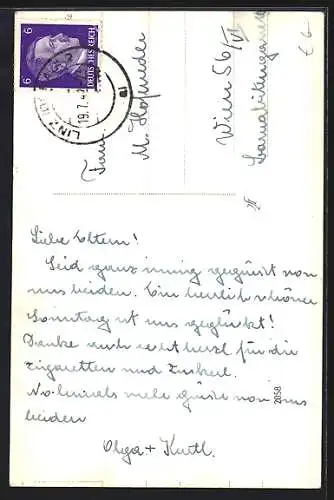 6 6
DEUTSCHES REICH
LINZ
19.7.4
a1
Frau
M. Hofrieder
Wien 56/VI
€ 6
Liebe Eltern!
Seid ganz innig gegrüsst von
uns beiden. Ein herrlich schöner
Sonntag ist uns geglückt!
Danke auch recht herzl. für die
Zigaretten und Zuckerl.
Nochmals viele Grüsse von uns
beiden
Olga + Kurtl.
2058